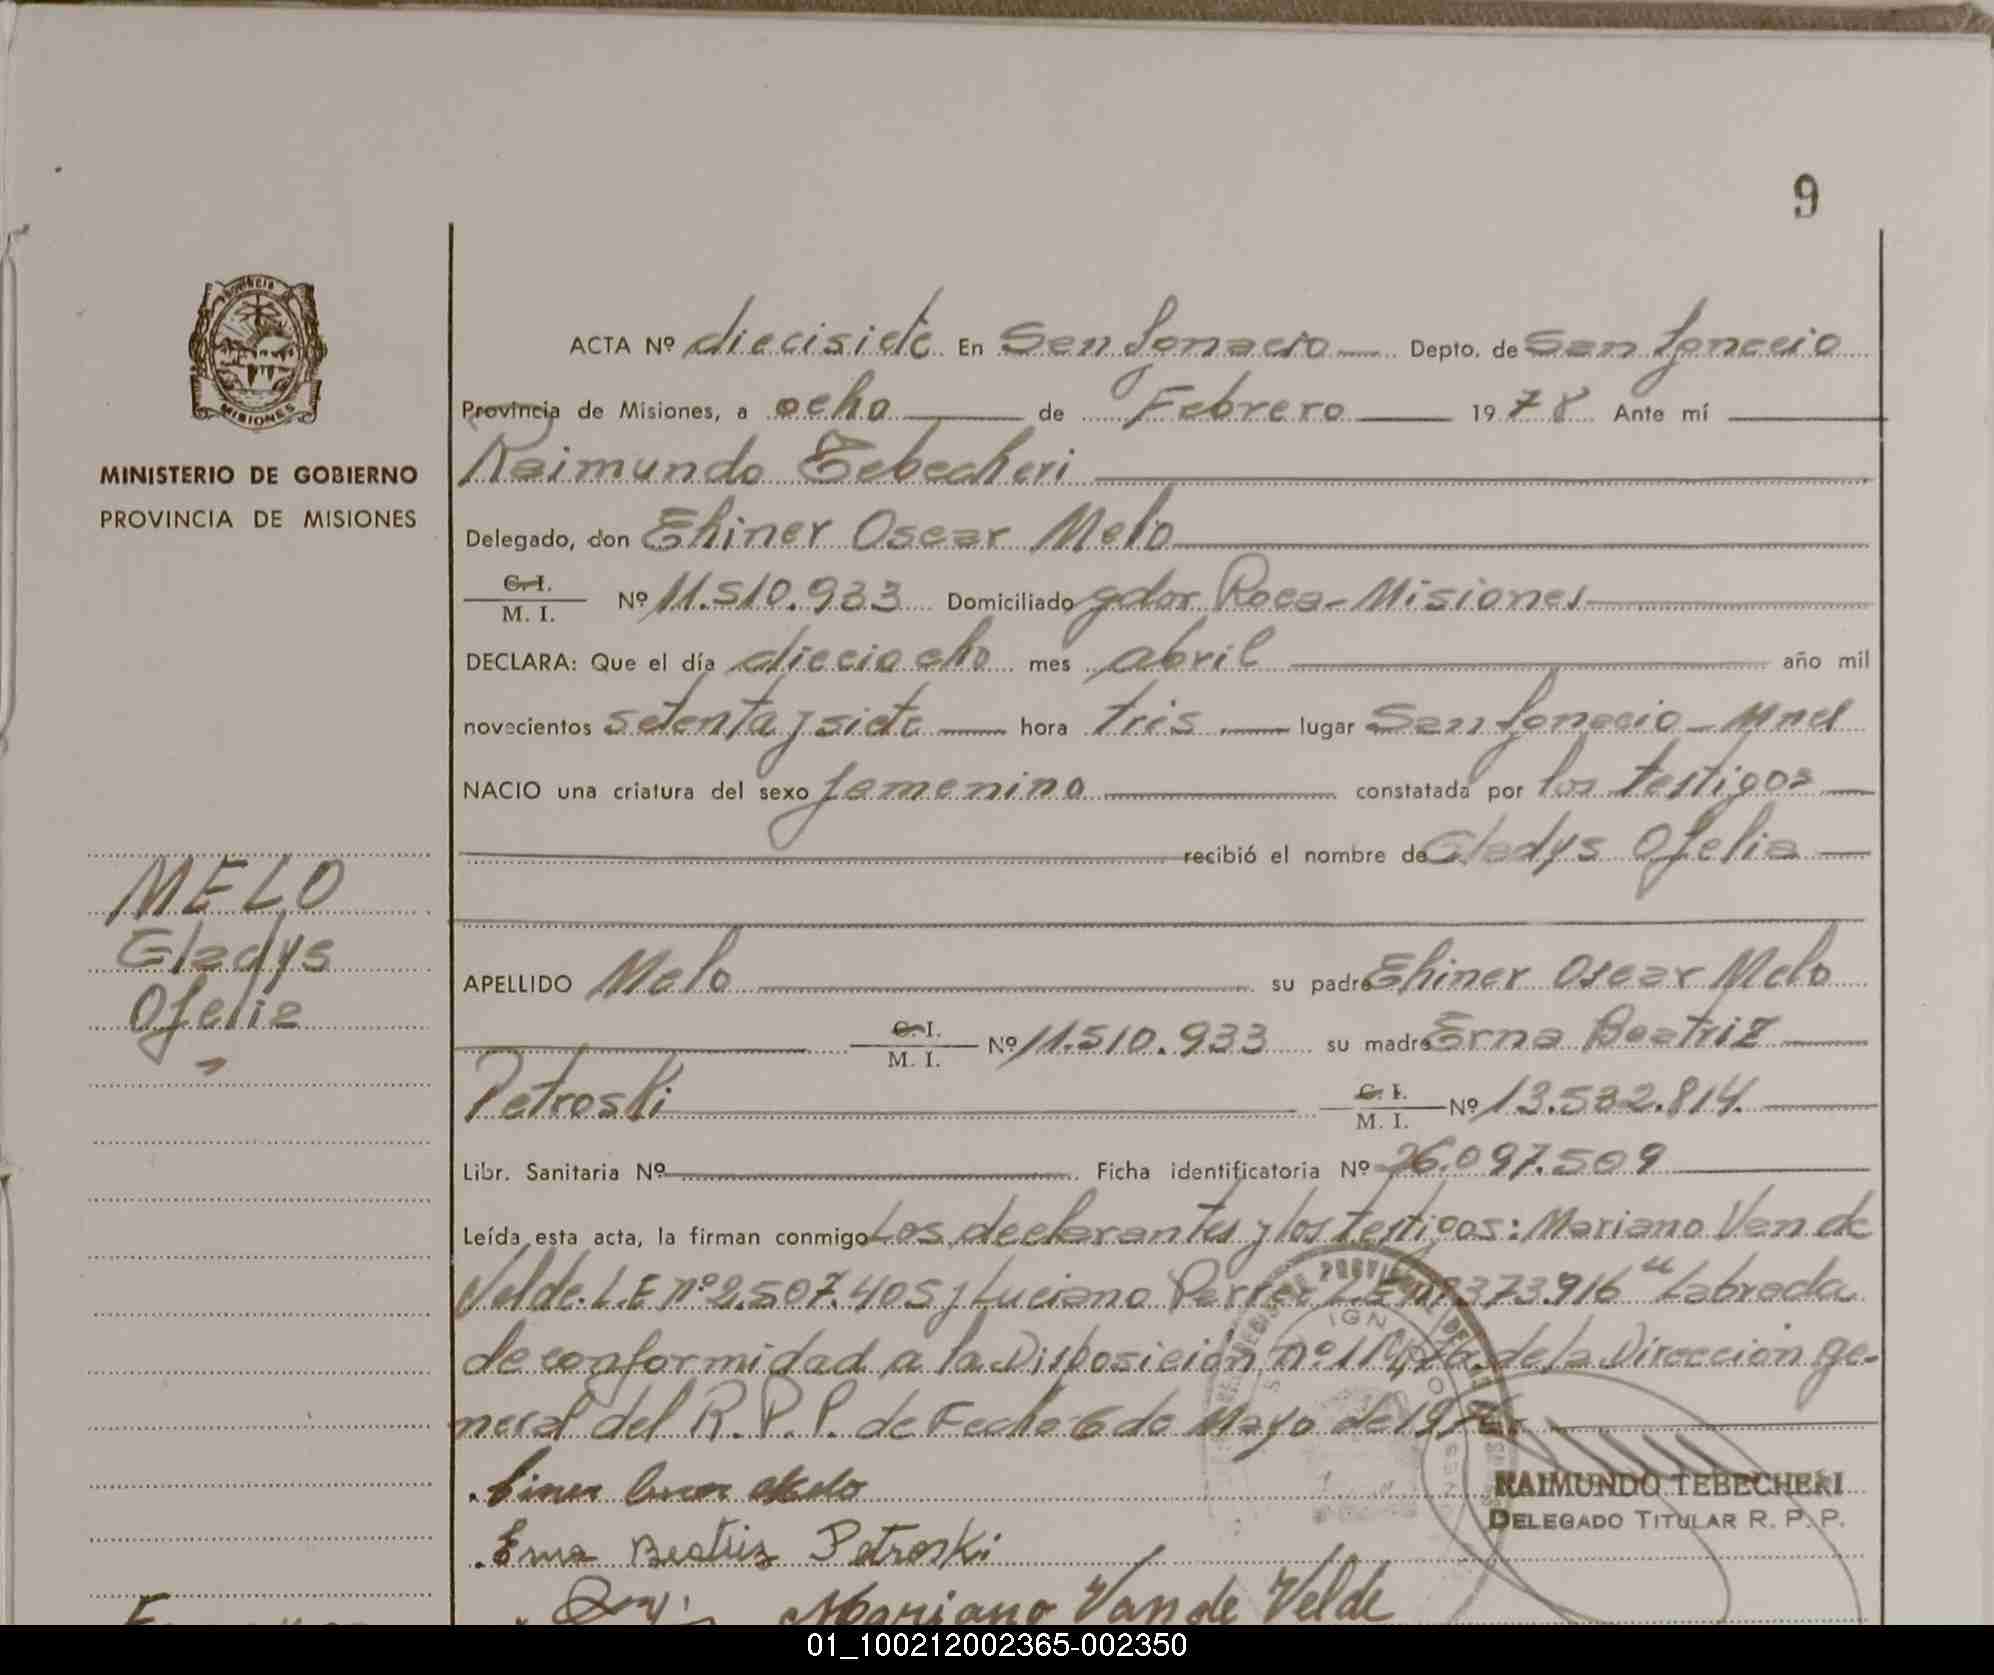 9
PROVINCIA
MISIONES
MINISTERIO DE GOBIERNO
PROVINCIA DE MISIONES
MELO
Gladys
Ofelia
ACTA Nº diecisiete En San Ignacio Depto. de San Ignacio
Provincia de Misiones, a ocho de Febrero 1978 Ante mí
Raimundo Tebecheri
Delegado, don Ehiner Oscar Melo
C. I.
M. I. Nº 11.510.933 Domiciliado gdor Roca - Misiones
DECLARA: Que el día dieciocho mes abril año mil
novecientos setenta y siete hora tres lugar San Ignacio - Mnes
NACIO una criatura del sexo femenino constatada por los testigos
recibió el nombre de Gladys Ofelia
APELLIDO Melo su padre Ehiner Oscar Melo
C. I.
M. I. Nº 11.510.933 su madre Erna Beatriz
Petroski C. I.
M. I. Nº 13.532.814.
Libr. Sanitaria Nº Ficha identificatoria Nº 26.097.509
Leída esta acta, la firman conmigo Los declarantes y los testigos: Mariano Van de
Velde. L.E nº 2.507.405 y Luciano L.E 373.916 "Labrada
de conformidad a la Disposición nº de la Dirección ge-
neral del R.P.P. de Fecha 6 de Mayo de
Melo
RAIMUNDO TEBECHERI
DELEGADO TITULAR R. P. P.
Erna Beatriz Petroski
Mariano Van de Velde
01_100212002365-002350